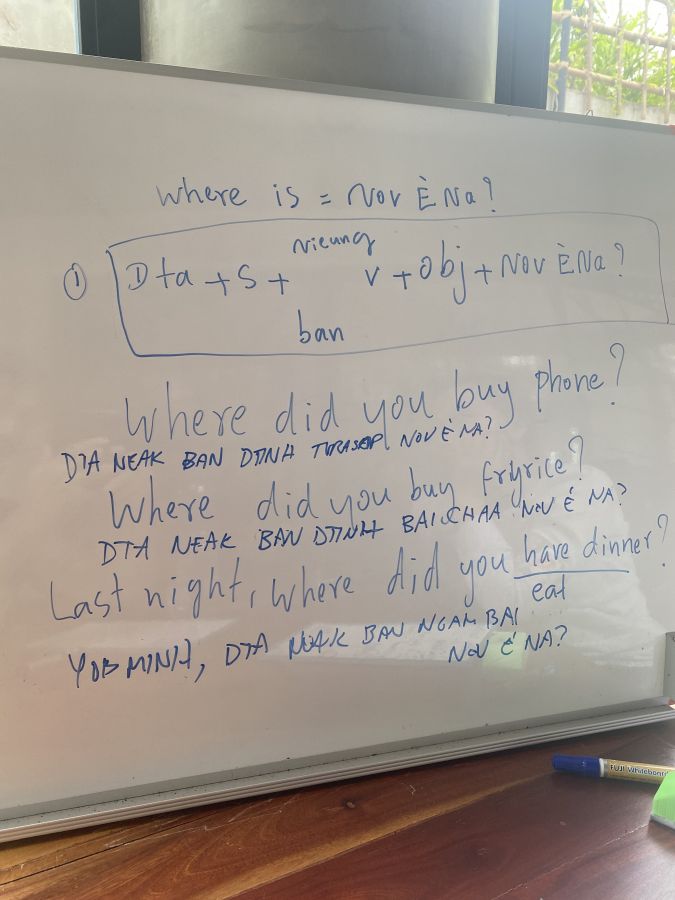 where is = Nov È Na?
① Dta + S + nieung ban V + Obj + Nov È Na?
Where did you buy phone?
DTA NEAK BAN DTINH TURASAP NOV È NA?
Where did you buy fryrice?
DTA NEAK BAN DTINH BAI CHAA NOV É NA?
Last night, where did you have dinner?
eat
YOB MINH, DTA NEAK BAN NGAM BAI
NOV É NA?
FUJI Whiteboard